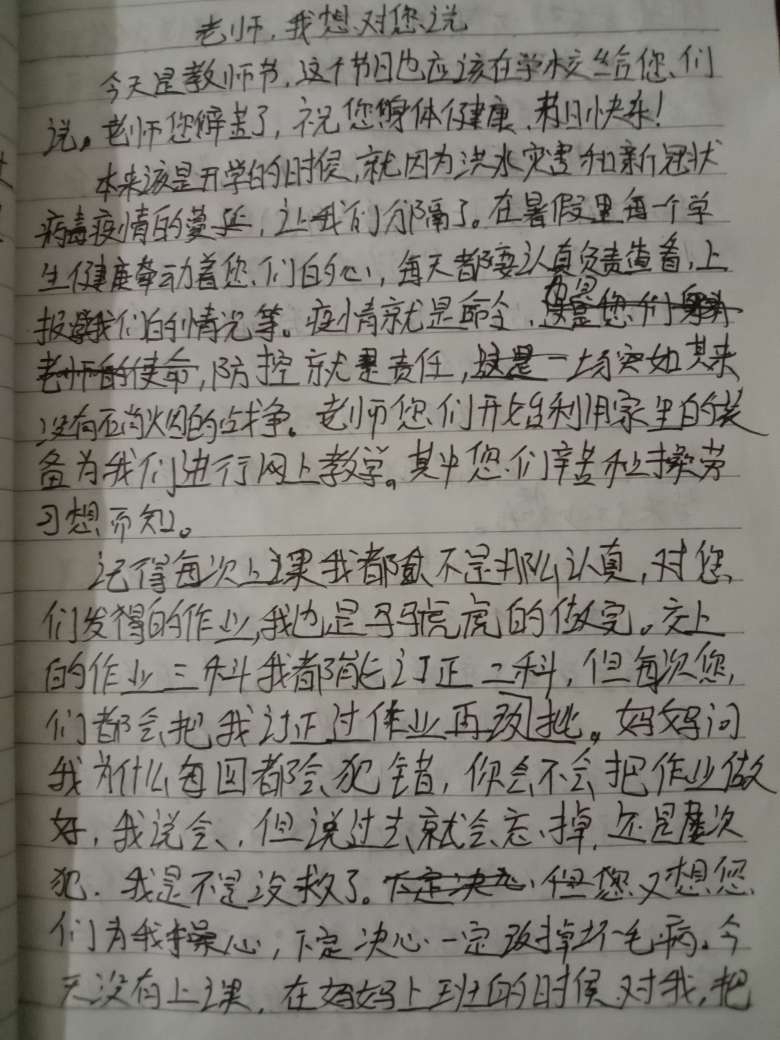 老师,我想对您说
今天是教师节,这个节日也应该在学校给您们
说。老师您辛苦了,祝您身体健康、节日快乐!
本来该是开学的时候,就因为洪水灾害和新冠状
病毒疫情的蔓延,让我们分隔了。在暑假里每一个学
生健康牵动着您们的心,每天都要认真负责查看,上
报我们的情况等。疫情就是命令,
老师的使命,防控就是责任,这是一场突如其来
没有硝火因的战争。老师您们开始利用家里的装
备为我们进行网上教学。其中您们辛苦和操劳
习想而知。
记得每次上课我都 不是那么认真,对您
们发得的作业,我也是马马虎虎的做完。交上
的作业三科我都能订正二科,但每次您
们都会把我订正过作业再改批。妈妈问
我为什么每回都会犯错,你会不会把作业做
好,我说会,但说过去就会忘掉,还是屡次
犯.我是不是没救了。下定决心 但您又想您
们为我操心,下定决心一定改掉坏毛病。今
天没有上课,在妈妈上班的时候对我,把